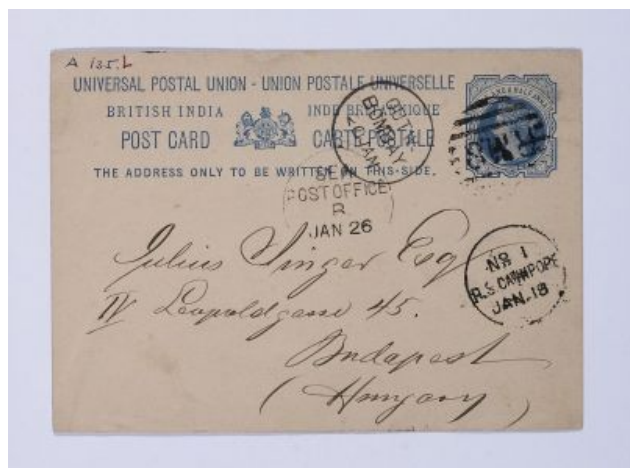 A 135.L
UNIVERSAL POSTAL UNION - UNION POSTALE UNIVERSELLE
BRITISH INDIA INDE BRITANNIQUE
POST CARD CARTE POSTALE
THE ADDRESS ONLY TO BE WRITTEN ON THIS SIDE.
BOMBAY
SEA
POST OFFICE
B
JAN 26
No 1
JAN. 18
Julius Singer Esq
IV Leopoldgasse 45.
Budapest
(Hungary)